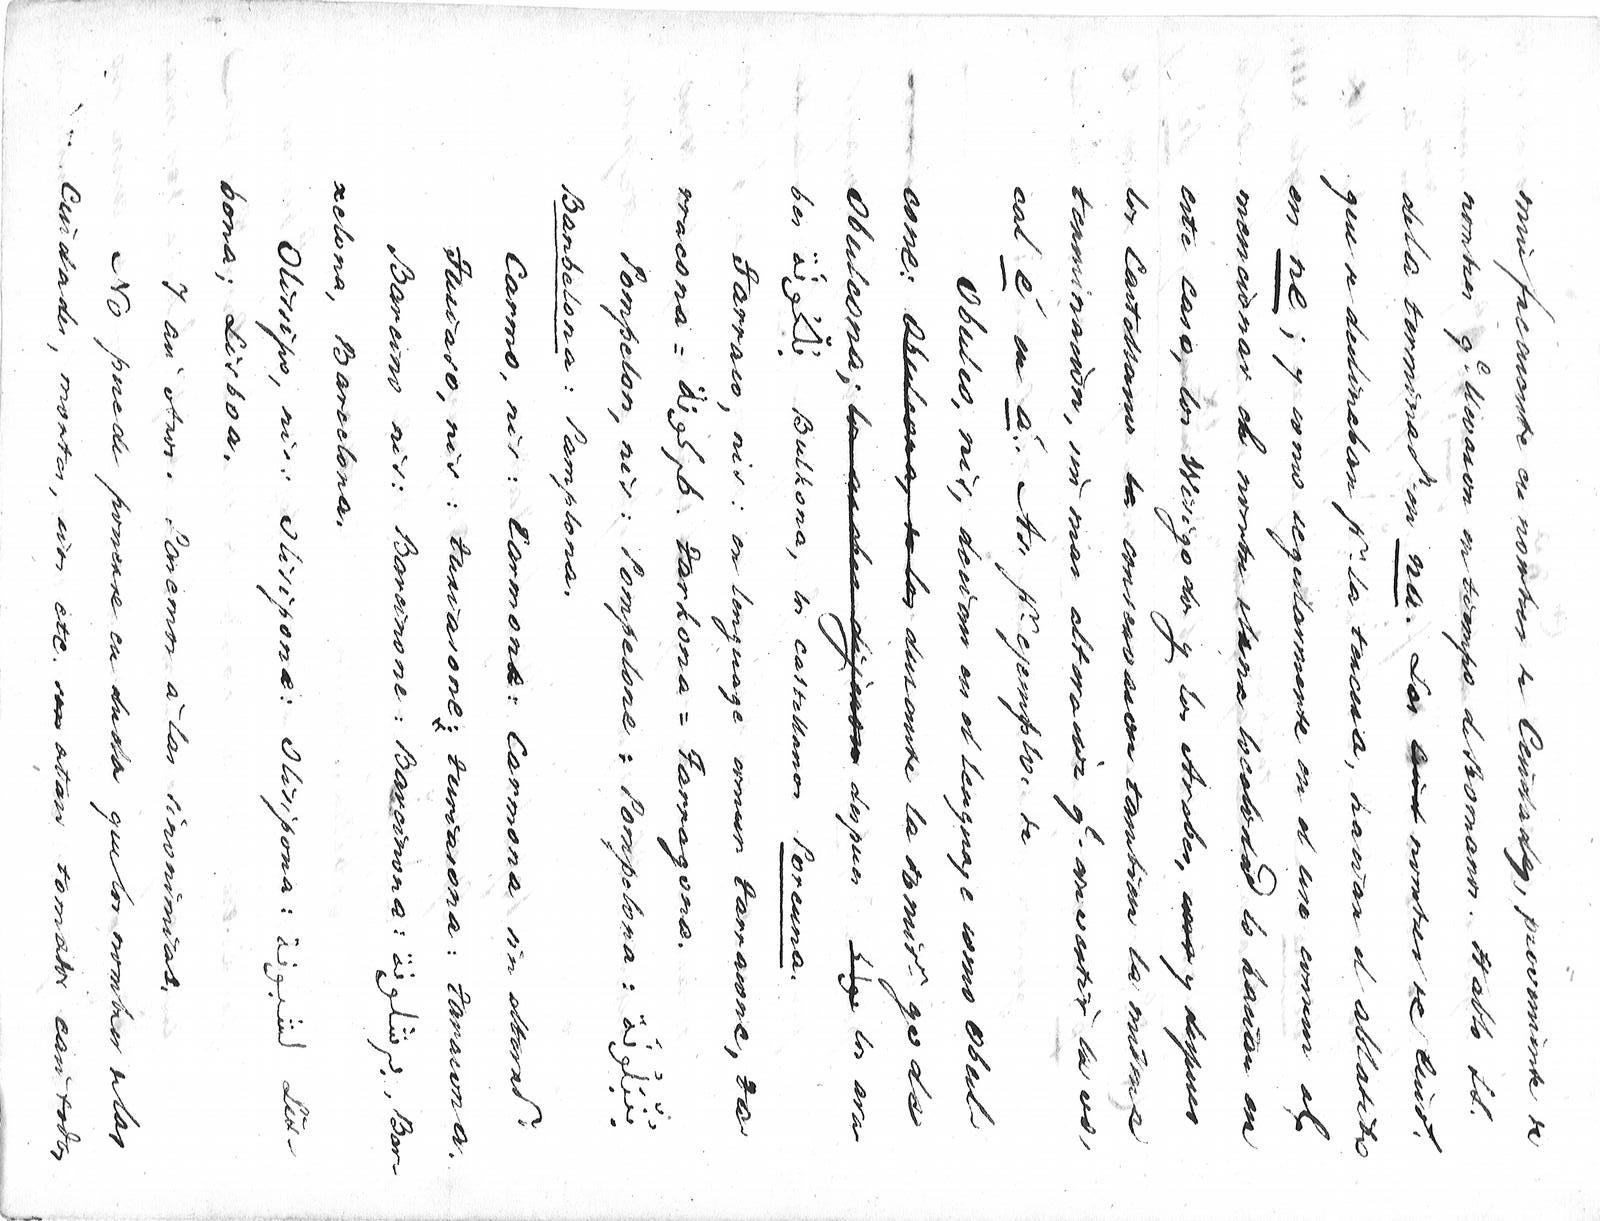 mui frecuente en nombres de Ciudades, proveniente de
nombres q.e llevaron en tiempo de Romanos. Hablo
dela terminad.n en na. Los nombres de Ciud.
que se declinaban p.r la tercera, hacian el ablativo
en ne; y como regularmente en el uso comun al
mencionar el nombre de una localidad lo hacian en
este caso, los Wisigodos y los Arabes, y despues
los Castellanos la conservaron tambien la misma
terminacion, sin mas alteracion q.e convertir la vo-
cal é en á. Asi p.r egemplo: de
Obulco, nis, decian en el lenguage comun Obul
cone: Obulcona, durante la domin.n goda
Obulcona; los arabes dijeron despues los ara
bes Bulkona, los castellanos Porcuna.
Tarraco, nis: en lenguage comun Tarracone, Ta
rracona = طركونة. Tarkona = Tarragona.
Pompelon, nis: Pompelone: Pompelona: بنبلونة:
Banbelona: Pamplona.
Carmo, nis: Carmone: Carmona sin alterad.n
Turiaso, nis: Turiasone: Turiasona: Tarazona.
Barcino nis: Barcinone: Barcinona: برشلونة, Bar-
xelona, Barcelona.
Olissipo, nis: Olisipone: Olisipona: لشبونة Lis-
bona; Lisboa.
Y asi otros. Pasemos a las sinonimias.
No puede ponerse en duda que los nombres delas
Ciudades, montes, rios etc. estan tomados casi todos